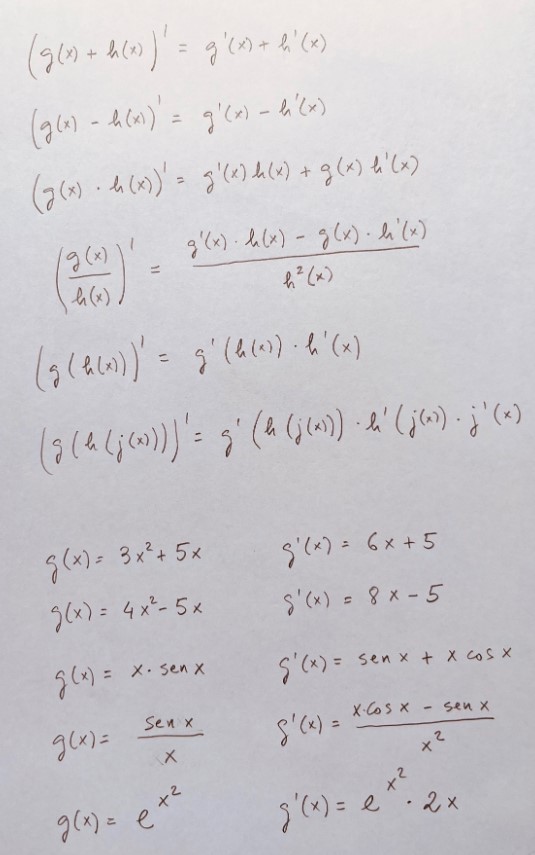 (g(x) + h(x))' = g'(x) + h'(x)
(g(x) - h(x))' = g'(x) - h'(x)
(g(x) · h(x))' = g'(x) h(x) + g(x) h'(x)
(g(x)/h(x))' = (g'(x) · h(x) - g(x) · h'(x))/h²(x)
(g(h(x)))' = g'(h(x)) · h'(x)
(g(h(j(x))))' = g'(h(j(x))) · h'(j(x)) · j'(x)
g(x) = 3x² + 5x g'(x) = 6x + 5
g(x) = 4x² - 5x g'(x) = 8x - 5
g(x) = x · sen x g'(x) = sen x + x cos x
g(x) = sen x / x g'(x) = (x·cos x - sen x)/x²
g(x) = e^x² g'(x) = e^x² · 2x